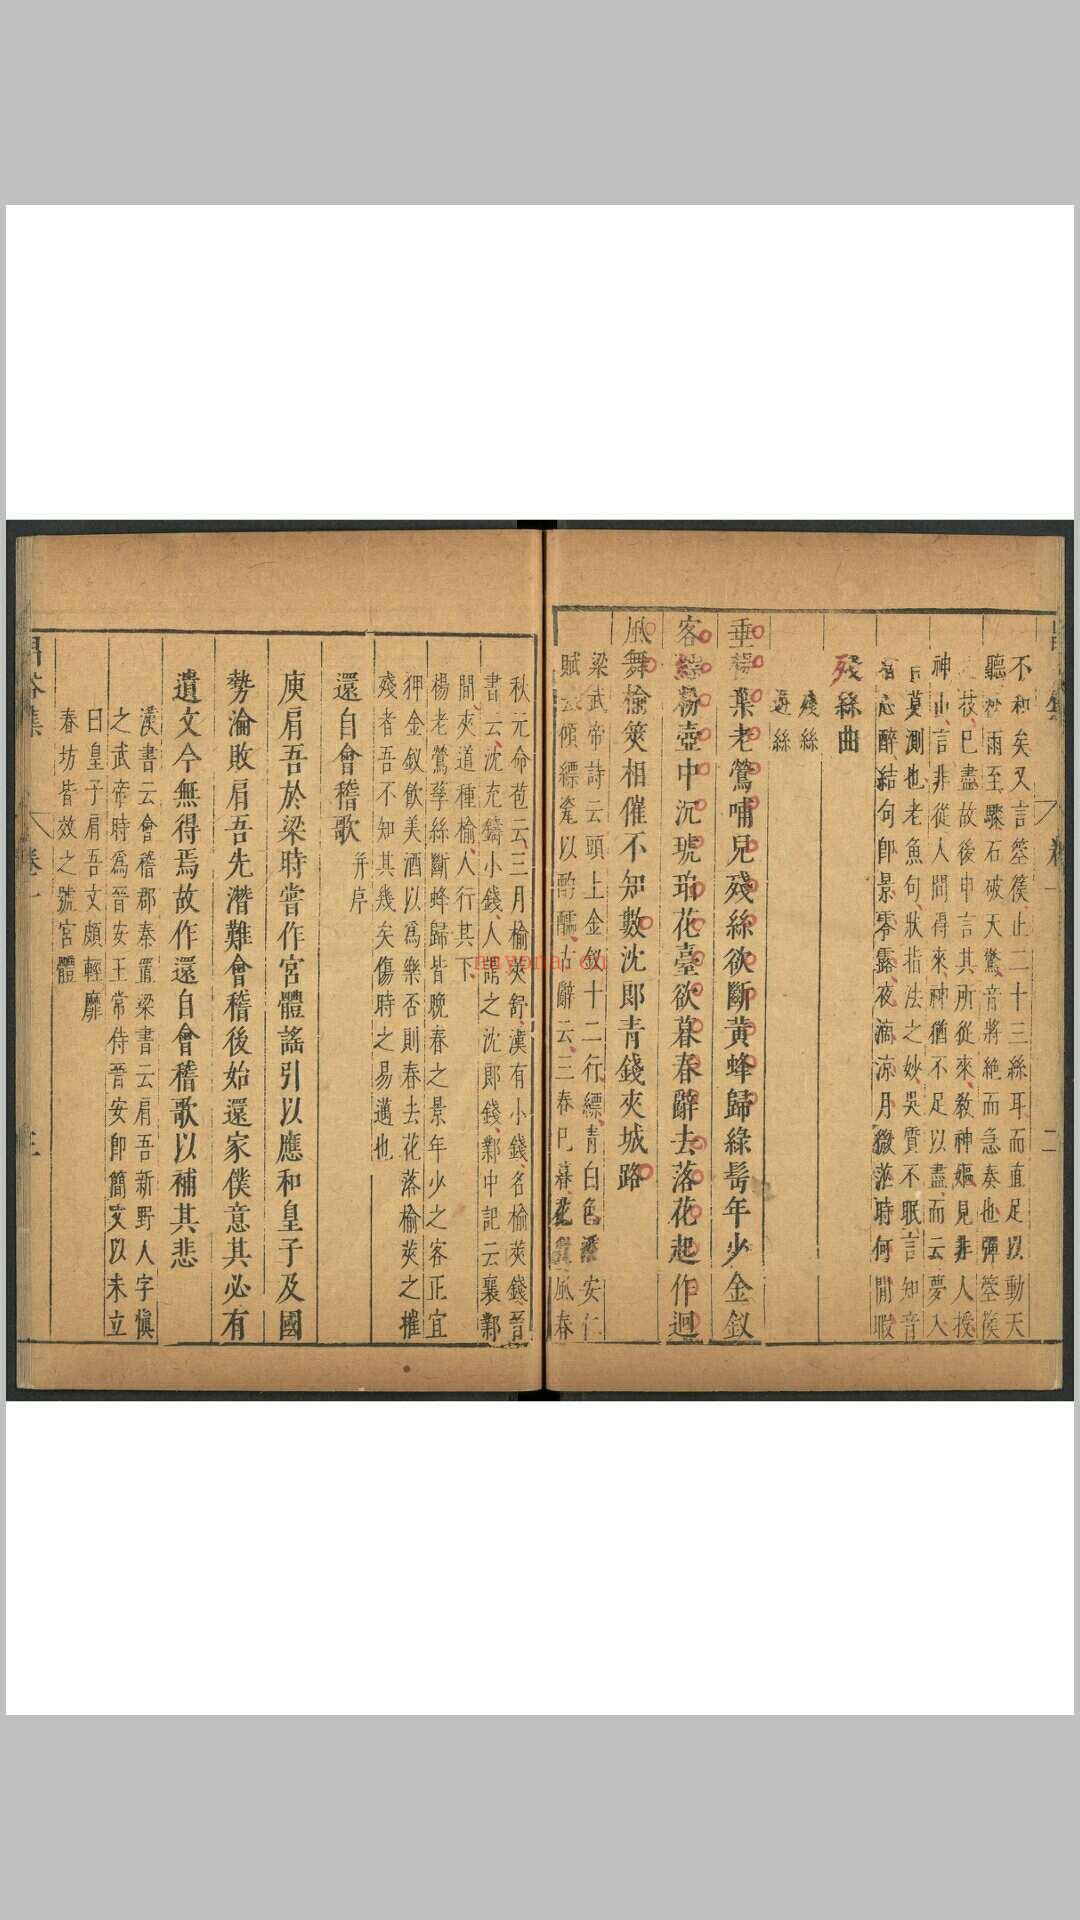 不和矣又言箜篌止二十三絲耳而直足以動天
聽於雨至驟石破天驚音將絕而急奏也彈箜篌
技巳盡故後申言其所從來教神嫗見非人授
神山言非從人間得來神猶不足以盡而云夢入
莫測也老魚句狀指法之妙吳質不眠言知音
者心醉結句即景零露夜滴涼月微茫時何閒暇
殘絲曲
殘絲
遊絲
垂楊葉老鶯哺兒殘絲欲斷黃蜂歸綠鬢年少金釵
客縹粉壺中沉琥珀花臺欲暮春辭去落花起作迴
風舞榆莢相催不知數沈郎青錢夾城路
梁武帝詩云頭上金釵十二行縹青白色潘安仁
賦云傾縹瓷以酌醽古辭云三春巳暮花從風春
秋元命苞云三月榆莢舒漢有小錢名榆莢錢晉
書云沈充鑄小錢人謂之沈郎錢鄴中記云襄鄴
間夾道種榆人行其下
楊老鶯孳絲斷蜂歸皆晚春之景年少之客正宜
狎金釵飲美酒以爲樂否則春去花落榆莢之摧
殘者吾不知其幾矣傷時之易邁也
還自會稽歌 并序
庾肩吾於梁時嘗作宮體謠引以應和皇子及國
勢淪敗肩吾先潛難會稽後始還家僕意其必有
遺文今無得焉故作還自會稽歌以補其悲
漢書云會稽郡秦置梁書云肩吾新野人字愼
之武帝時爲晉安王常侍晉安即簡文以未立
曰皇子肩吾文頗輕靡
春坊皆效之號宮體
昌谷集
卷一
三
卷一
二
nuyona.cn